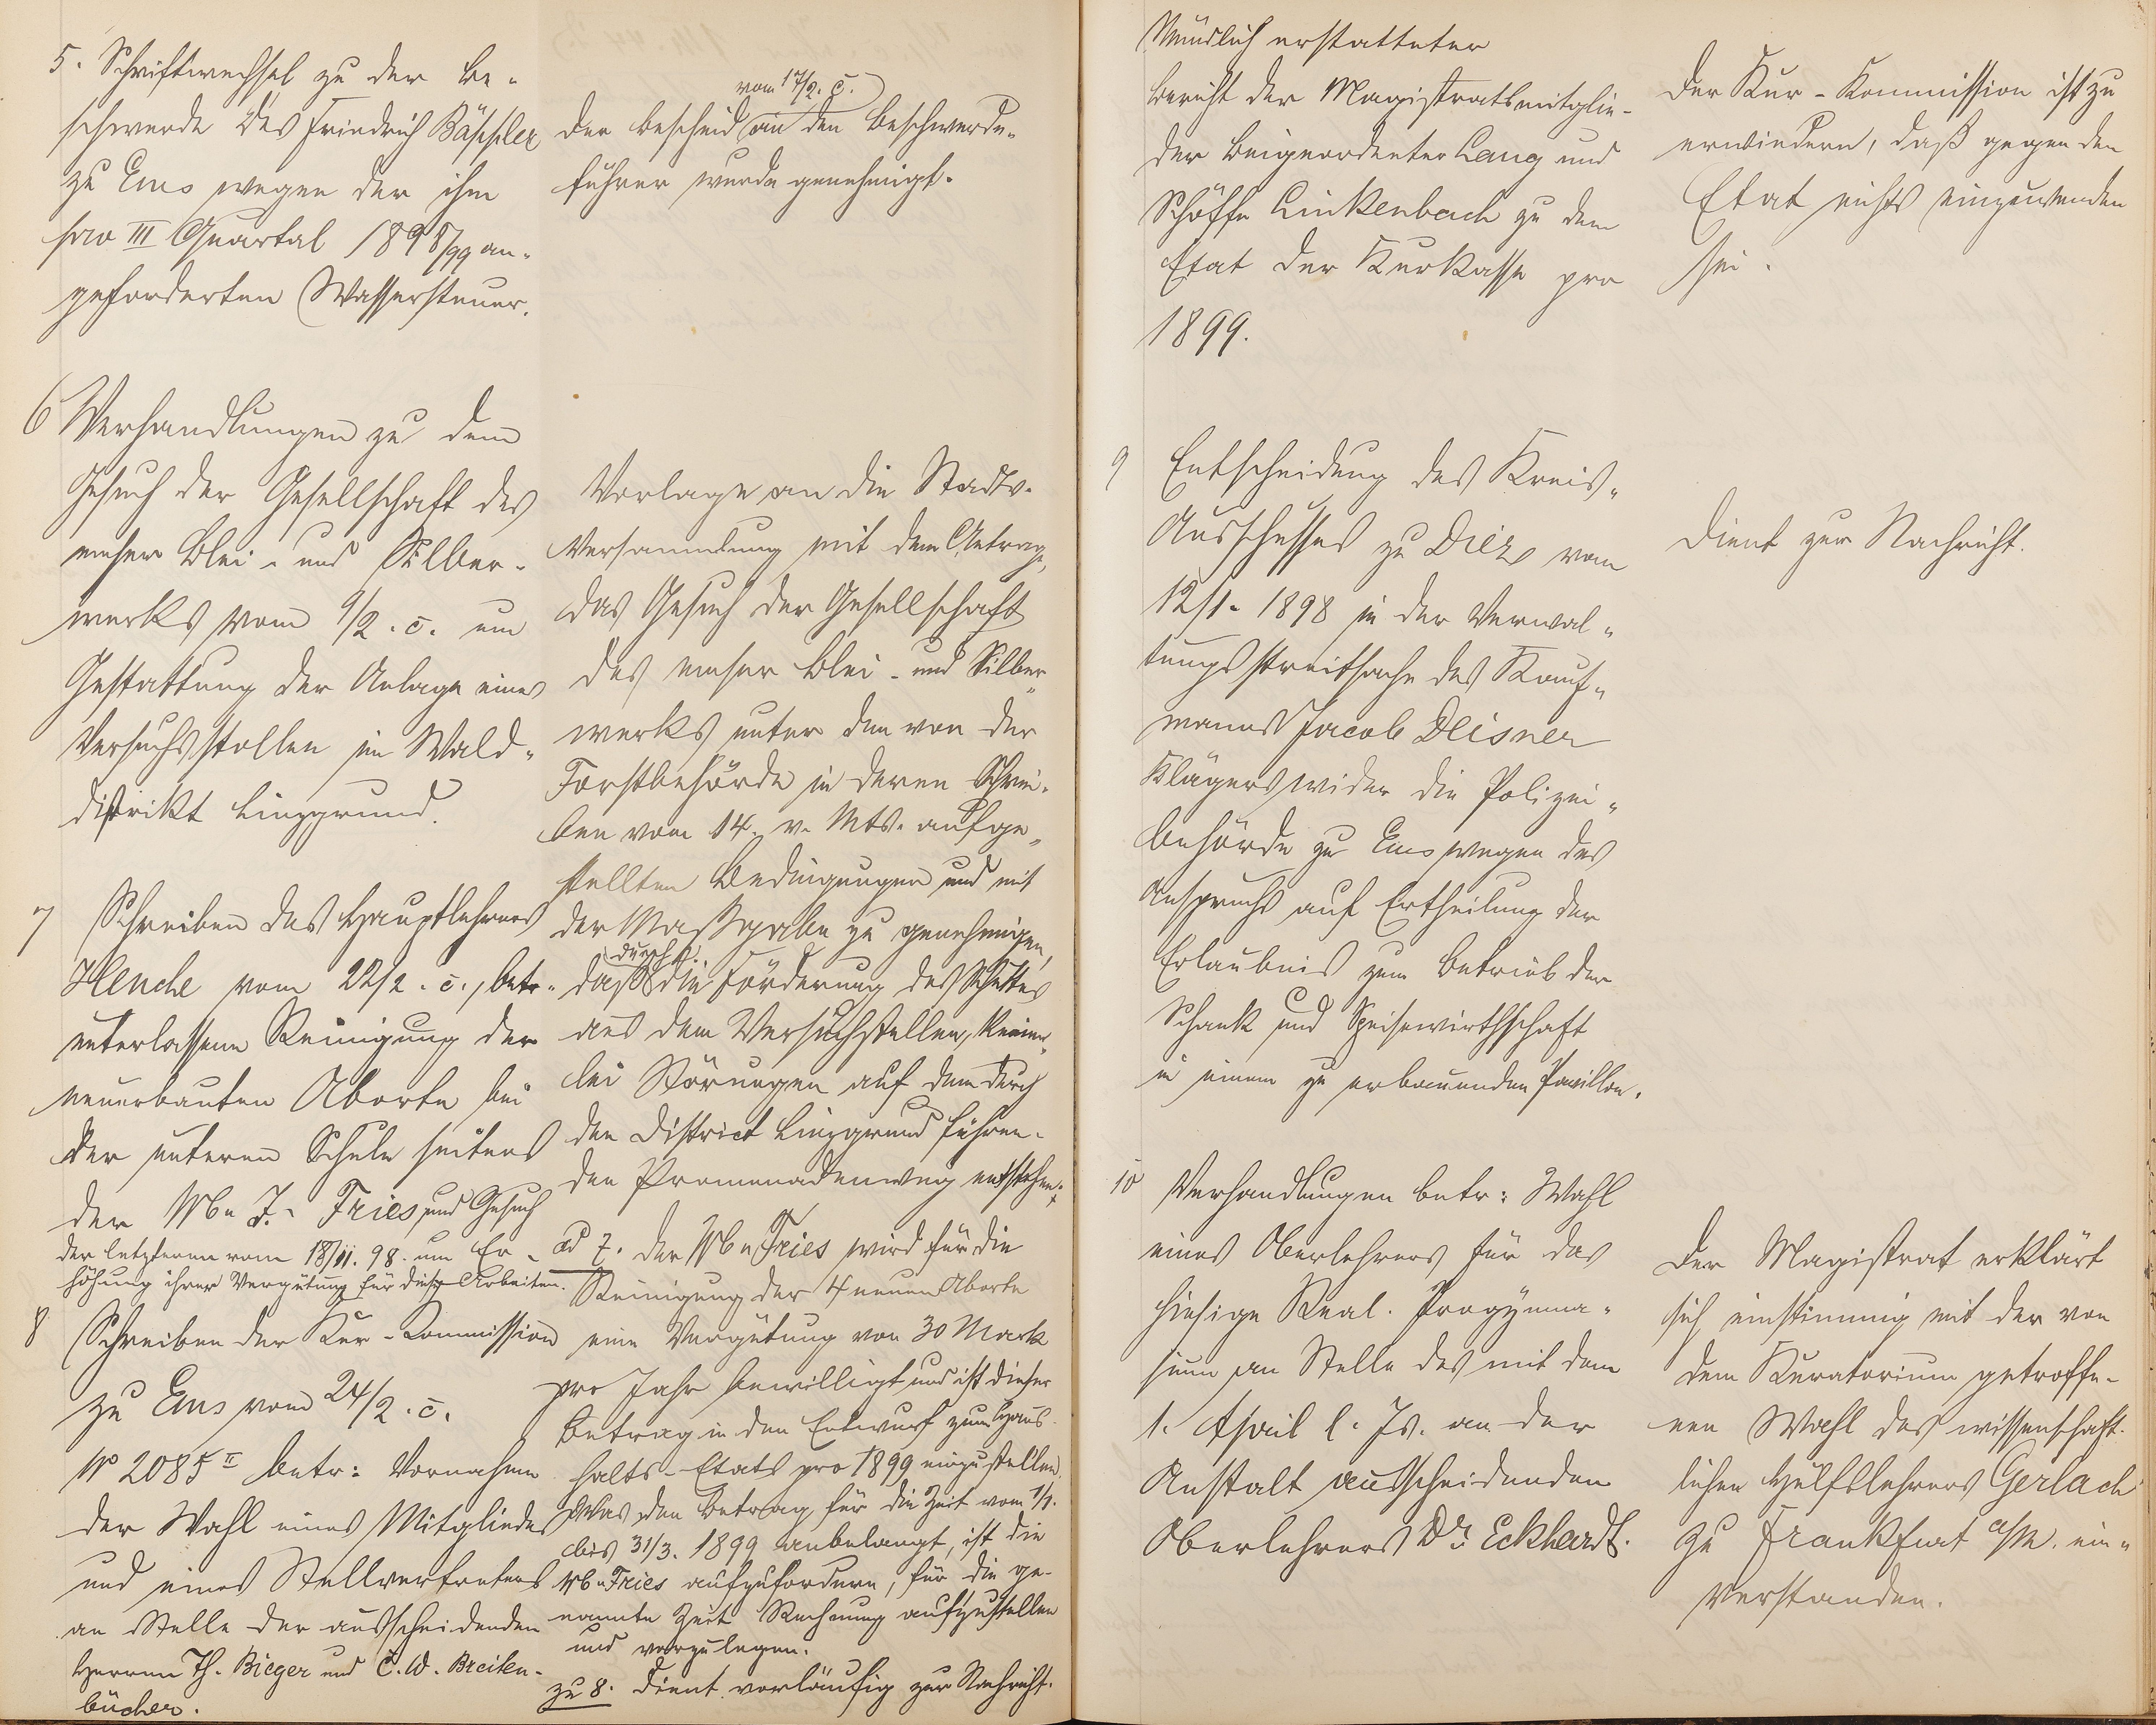 5. Schriftwechsel zu der Be-
schwerde des Friedrich Bäppler
zu Ems wegen der ihm
pro III Quartal 1898/99 an-
geforderten Wassersteuer.
vom 17/2. c.
Der Bescheid an den Beschwerde-
führer wurde genehmigt.
6 Verhandlungen zu dem
Gesuch der Gesellschaft des
emser Blei- und Silber-
werks vom 1/2. c. um
Gestattung der Anlage eines
Versuchsstollen im Wald-
distrikt Linzgrund.
Vorlage an die Stadtv.
Versammlung mit dem Antrage,
das Gesuch der Gesellschaft
des emser Blei- und Silber-
werks unter den von der
Forstbehörde in deren Schrei-
ben vom 14. v. Mts. aufge-
stellten Bedingungen und mit
der Maßgabe zu genehmigen,
durch
daß die Förderung des Schuttes
aus dem Versuchstollen, keiner-
lei Störungen auf dem durch
den District Linzgrund führen-
den Promenadenweg entstehen.
7 Schreiben des Hauptlehrers
Henche vom 22/2. c., betr.
unterlassene Reinigung der
neuerbauten Aborte bei
der unteren Schule seitens
der Ww. J. Fries und Gesuch
der letzteren vom 18/11. 98. um Er-
höhung ihrer Vergütung für diese Arbeiten.
ad 7. Der Ww Fries wird für die
Reinigung der 4 neuen Aborte
eine Vergütung von 30 Mark
pro Jahr bewilligt und ist dieser
Betrag in den Entwurf zum Haus-
halts-Etats pro 1899 einzustellen.
Was den Betrag für die Zeit vom 1/1.
bis 31/3. 1899 anbelangt, ist die
Ww Fries aufzufordern, für die ge-
nannte Zeit Rechnung aufzustellen
und vorzulegen.
8 Schreiben der Kur-Commission
zu Ems vom 24/2. c.
No 2085 II betr: Vornahme
der Wahl eines Mitgliedes
und eines Stellvertreters
an Stelle der ausscheidenden
Herren Th. Bieger und C. W. Breiten-
bücher.
zu 8. Dient vorläufig zur Nachricht.
Mündlich erstatteter
Bericht der Magistratsmitglie-
der Beigeordneter Lang und
Schöffe Linkenbach zu dem
Etat der Kurkasse pro
1899.
Der Kur-Kommission ist zu
erwiedern, daß gegen den
Etat nichts einzuwenden
sei.
9 Entscheidung des Kreis-
Ausschusses zu Diez vom
12/1. 1898 in der Verwal-
tungsstreitsache des Kauf-
manns Jacob Deisner
Klägers wider die Polizei-
behörde zu Ems wegen des
Anspruchs auf Ertheilung der
Erlaubnis zum Betrieb der
Schank und Speisewirthschaft
in einem zu erbauenden Pavillon.
Dient zur Nachricht.
10 Verhandlungen betr: Wahl
eines Oberlehrers für das
hiesige Real-Progymna-
sium an Stelle des mit dem
1. April l. Js. an der
Anstalt ausscheidenden
Oberlehrers Dr. Eckhardt.
Der Magistrat erklärt
sich einstimmig mit der von
dem Kuratorium getroffe-
nen Wahl des wissenschaft-
lichen Hülfslehrers Gerlach
zu Frankfurt a/M. ein-
verstanden.